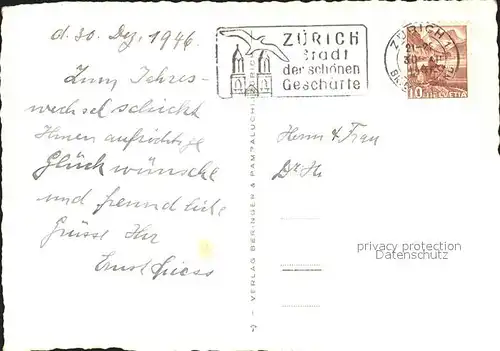 d. 30. Dez. 1946.
Zum Jahres-
wechsel schickt
Ihnen aufrichtige
Glückwünsche
und freundliche
Grüsse Ihr
Ernst
ZÜRICH
Stadt
der schönen
Geschäfte
ZÜRICH 1
30. XII
10 HELVETIA
Herrn & Frau
Dr. H
privacy protection
Datenschutz
VERLAG BERINGER & PAMPALUCHI